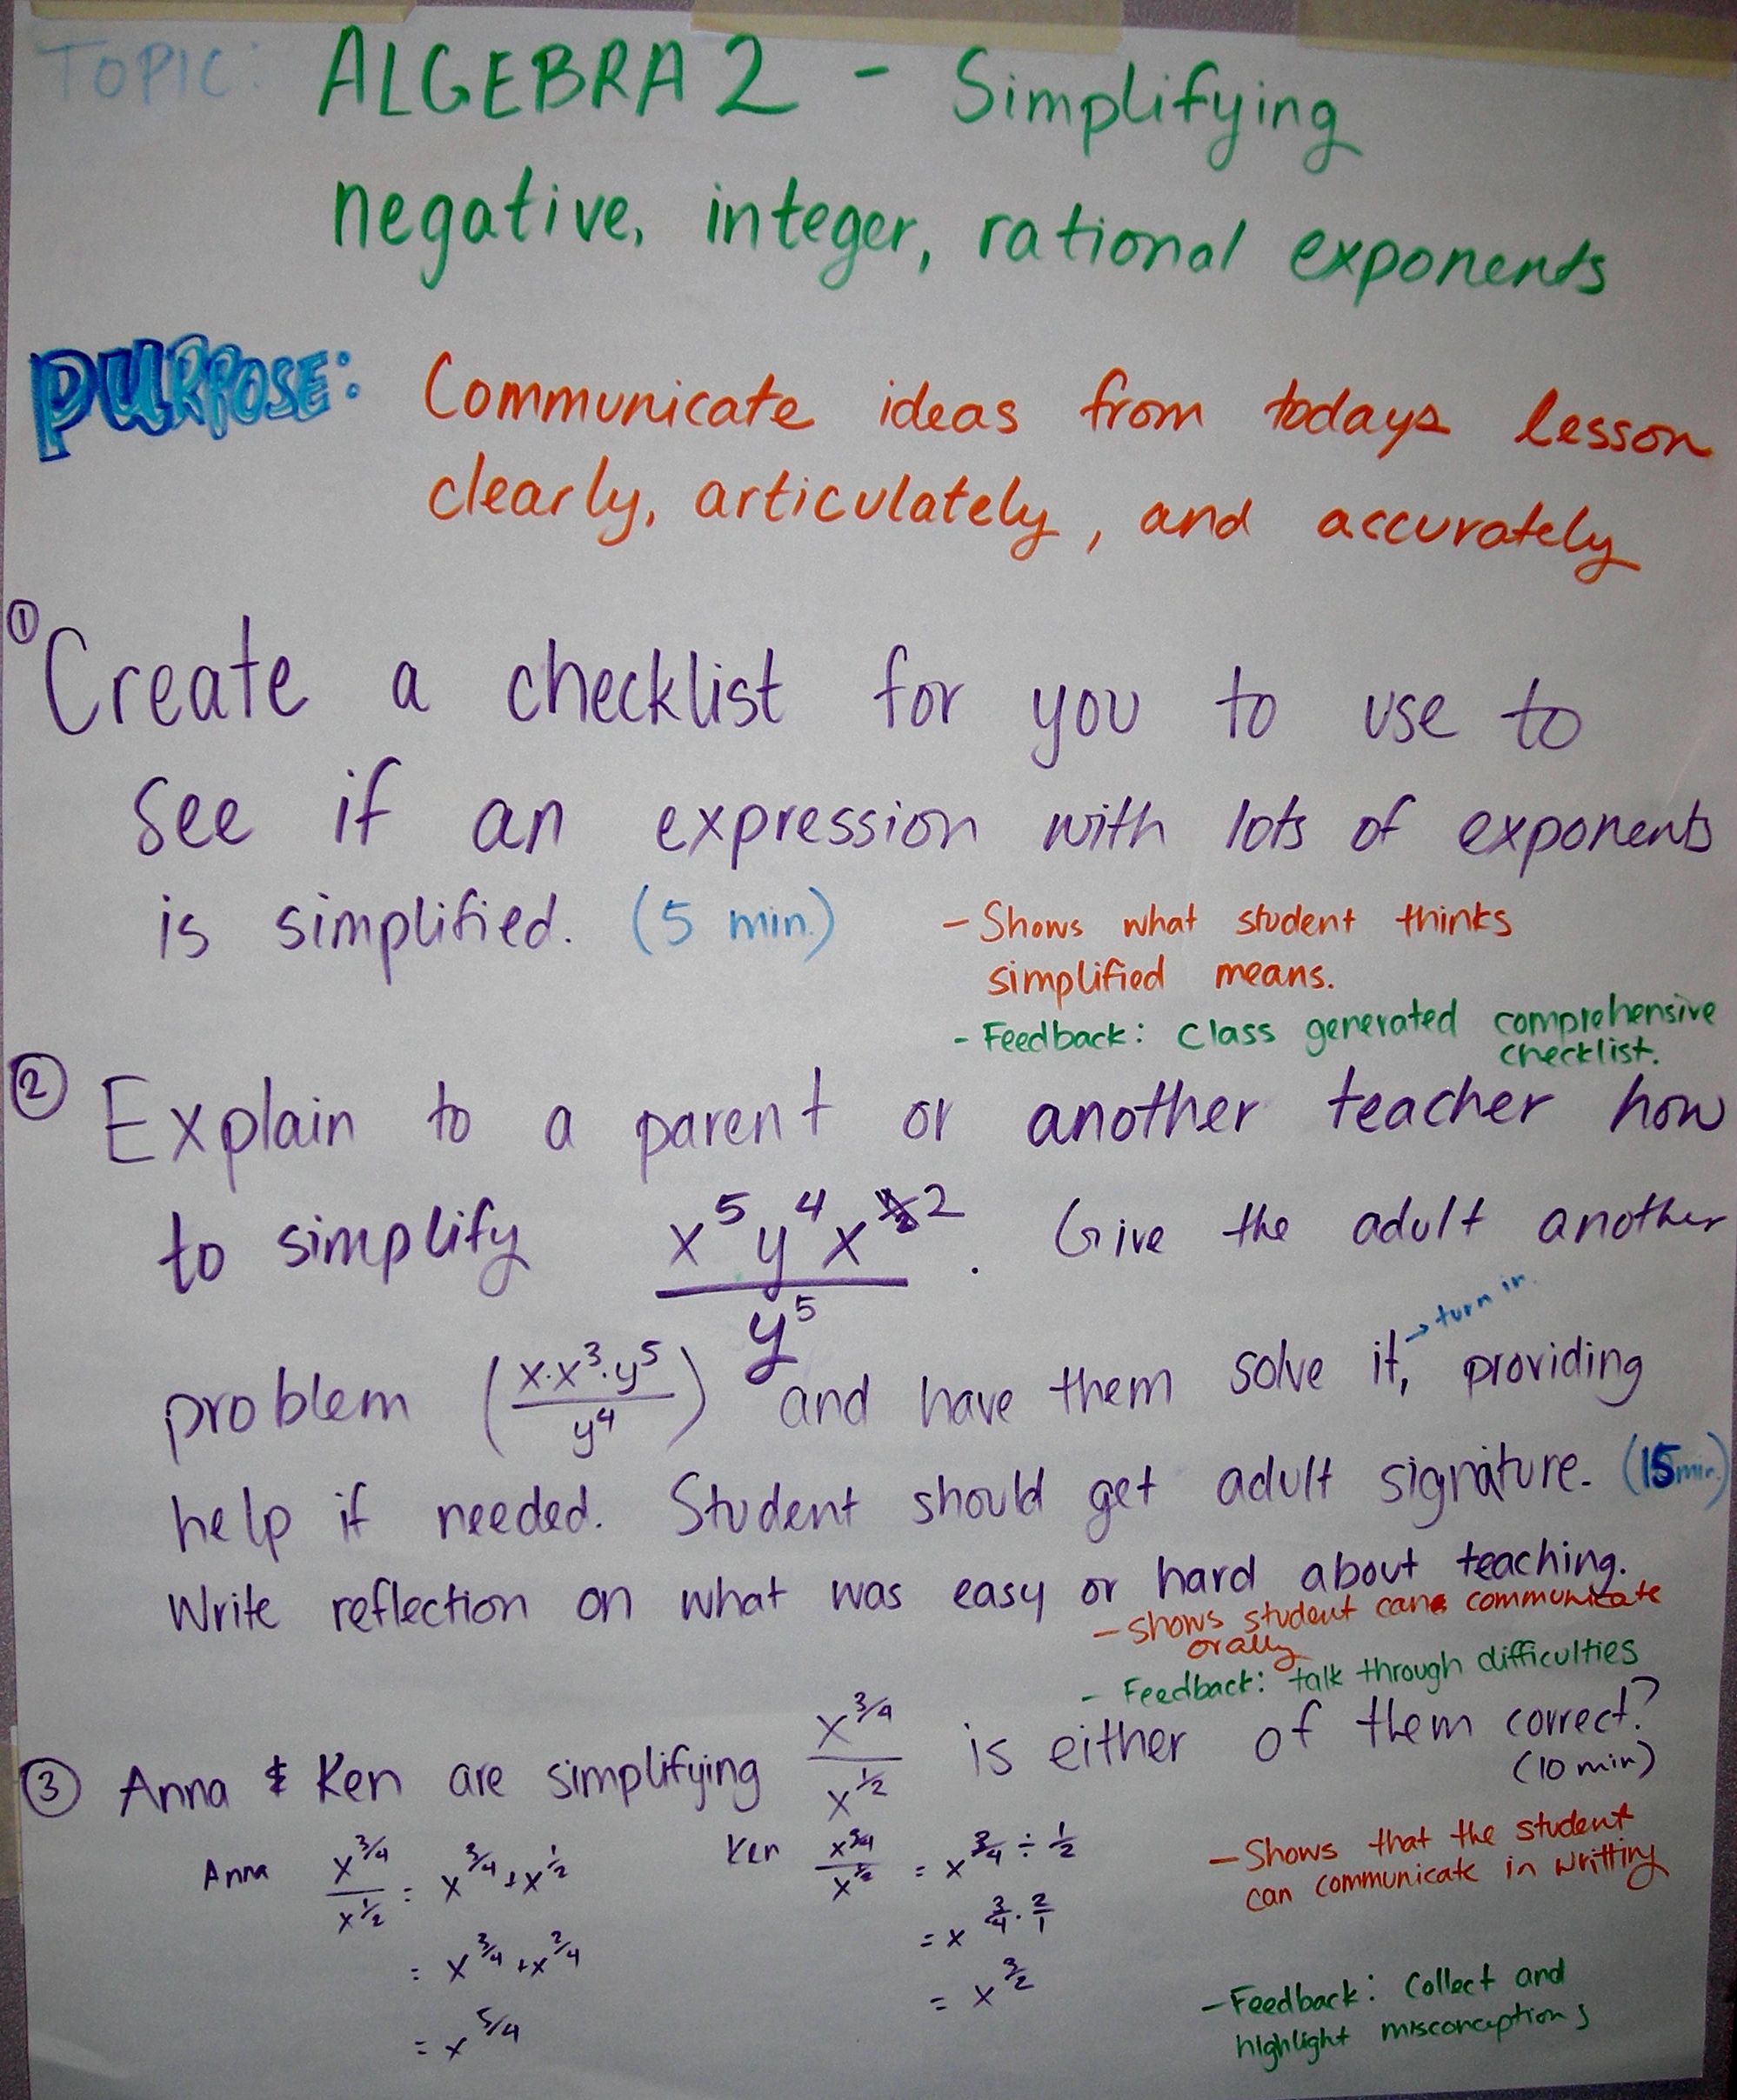 TOPIC: ALGEBRA 2 - Simplifying
negative, integer, rational exponents
PURPOSE: Communicate ideas from todays lesson
clearly, articulately, and accurately
① Create a checklist for you to use to
see if an expression with lots of exponents
is simplified. (5 min.)
- Shows what student thinks
simplified means.
- Feedback: Class generated comprehensive
checklist.
② Explain to a parent or another teacher how
to simplify x^5 y^4 x^2 / y^5 . Give the adult another
problem (x·x^3·y^5 / y^4) and have them solve it, → turn in providing
help if needed. Student should get adult signature. (15 min.)
Write reflection on what was easy or hard about teaching.
- Shows student can communicate
orally
- Feedback: talk through difficulties
③ Anna & Ken are simplifying x^3/4 / x^1/2 is either of them correct?
(10 min)
Anna x^3/4 / x^1/2 = x^3/4 + x^1/2
= x^3/4 + x^2/4
= x^5/4
Ken x^3/4 / x^1/2 = x^3/4 ÷ 1/2
= x^3/4 · 2/1
= x^3/2
- Shows that the student
can communicate in writting
- Feedback: Collect and
highlight misconceptions